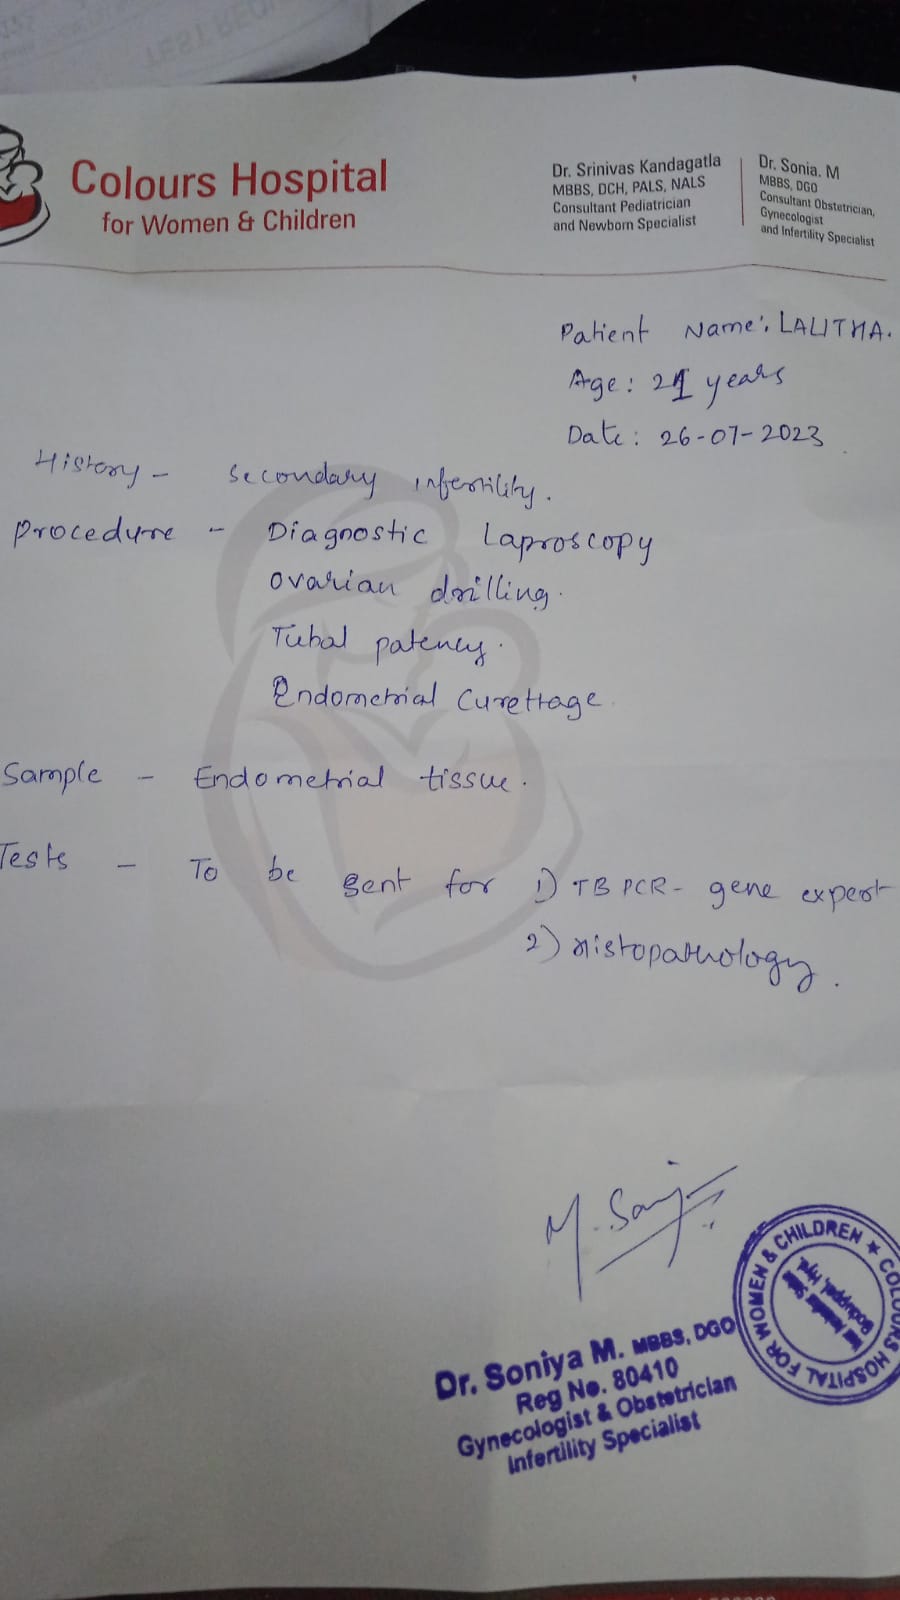 TEST REQ
Colours Hospital
for Women & Children
Dr. Srinivas Kandagatla
MBBS, DCH, PALS, NALS
Consultant Pediatrician
and Newborn Specialist
Dr. Sonia. M
MBBS, DGO
Consultant Obstetrician,
Gynecologist
and Infertility Specialist
Patient Name: LALITHA.
Age: 21 years
Date: 26-07-2023
History - Secondary infertility.
Procedure - Diagnostic Laproscopy
Ovarian drilling.
Tubal patency.
Endometrial Curettage.
Sample - Endometrial tissue.
Tests - To be sent for 1) TB PCR - gene expert
2) Histopathology.
Dr. Soniya M. MBBS, DGO
Reg No. 80410
Gynecologist & Obstetrician
Infertility Specialist
COLOURS HOSPITAL FOR WOMEN & CHILDREN ★